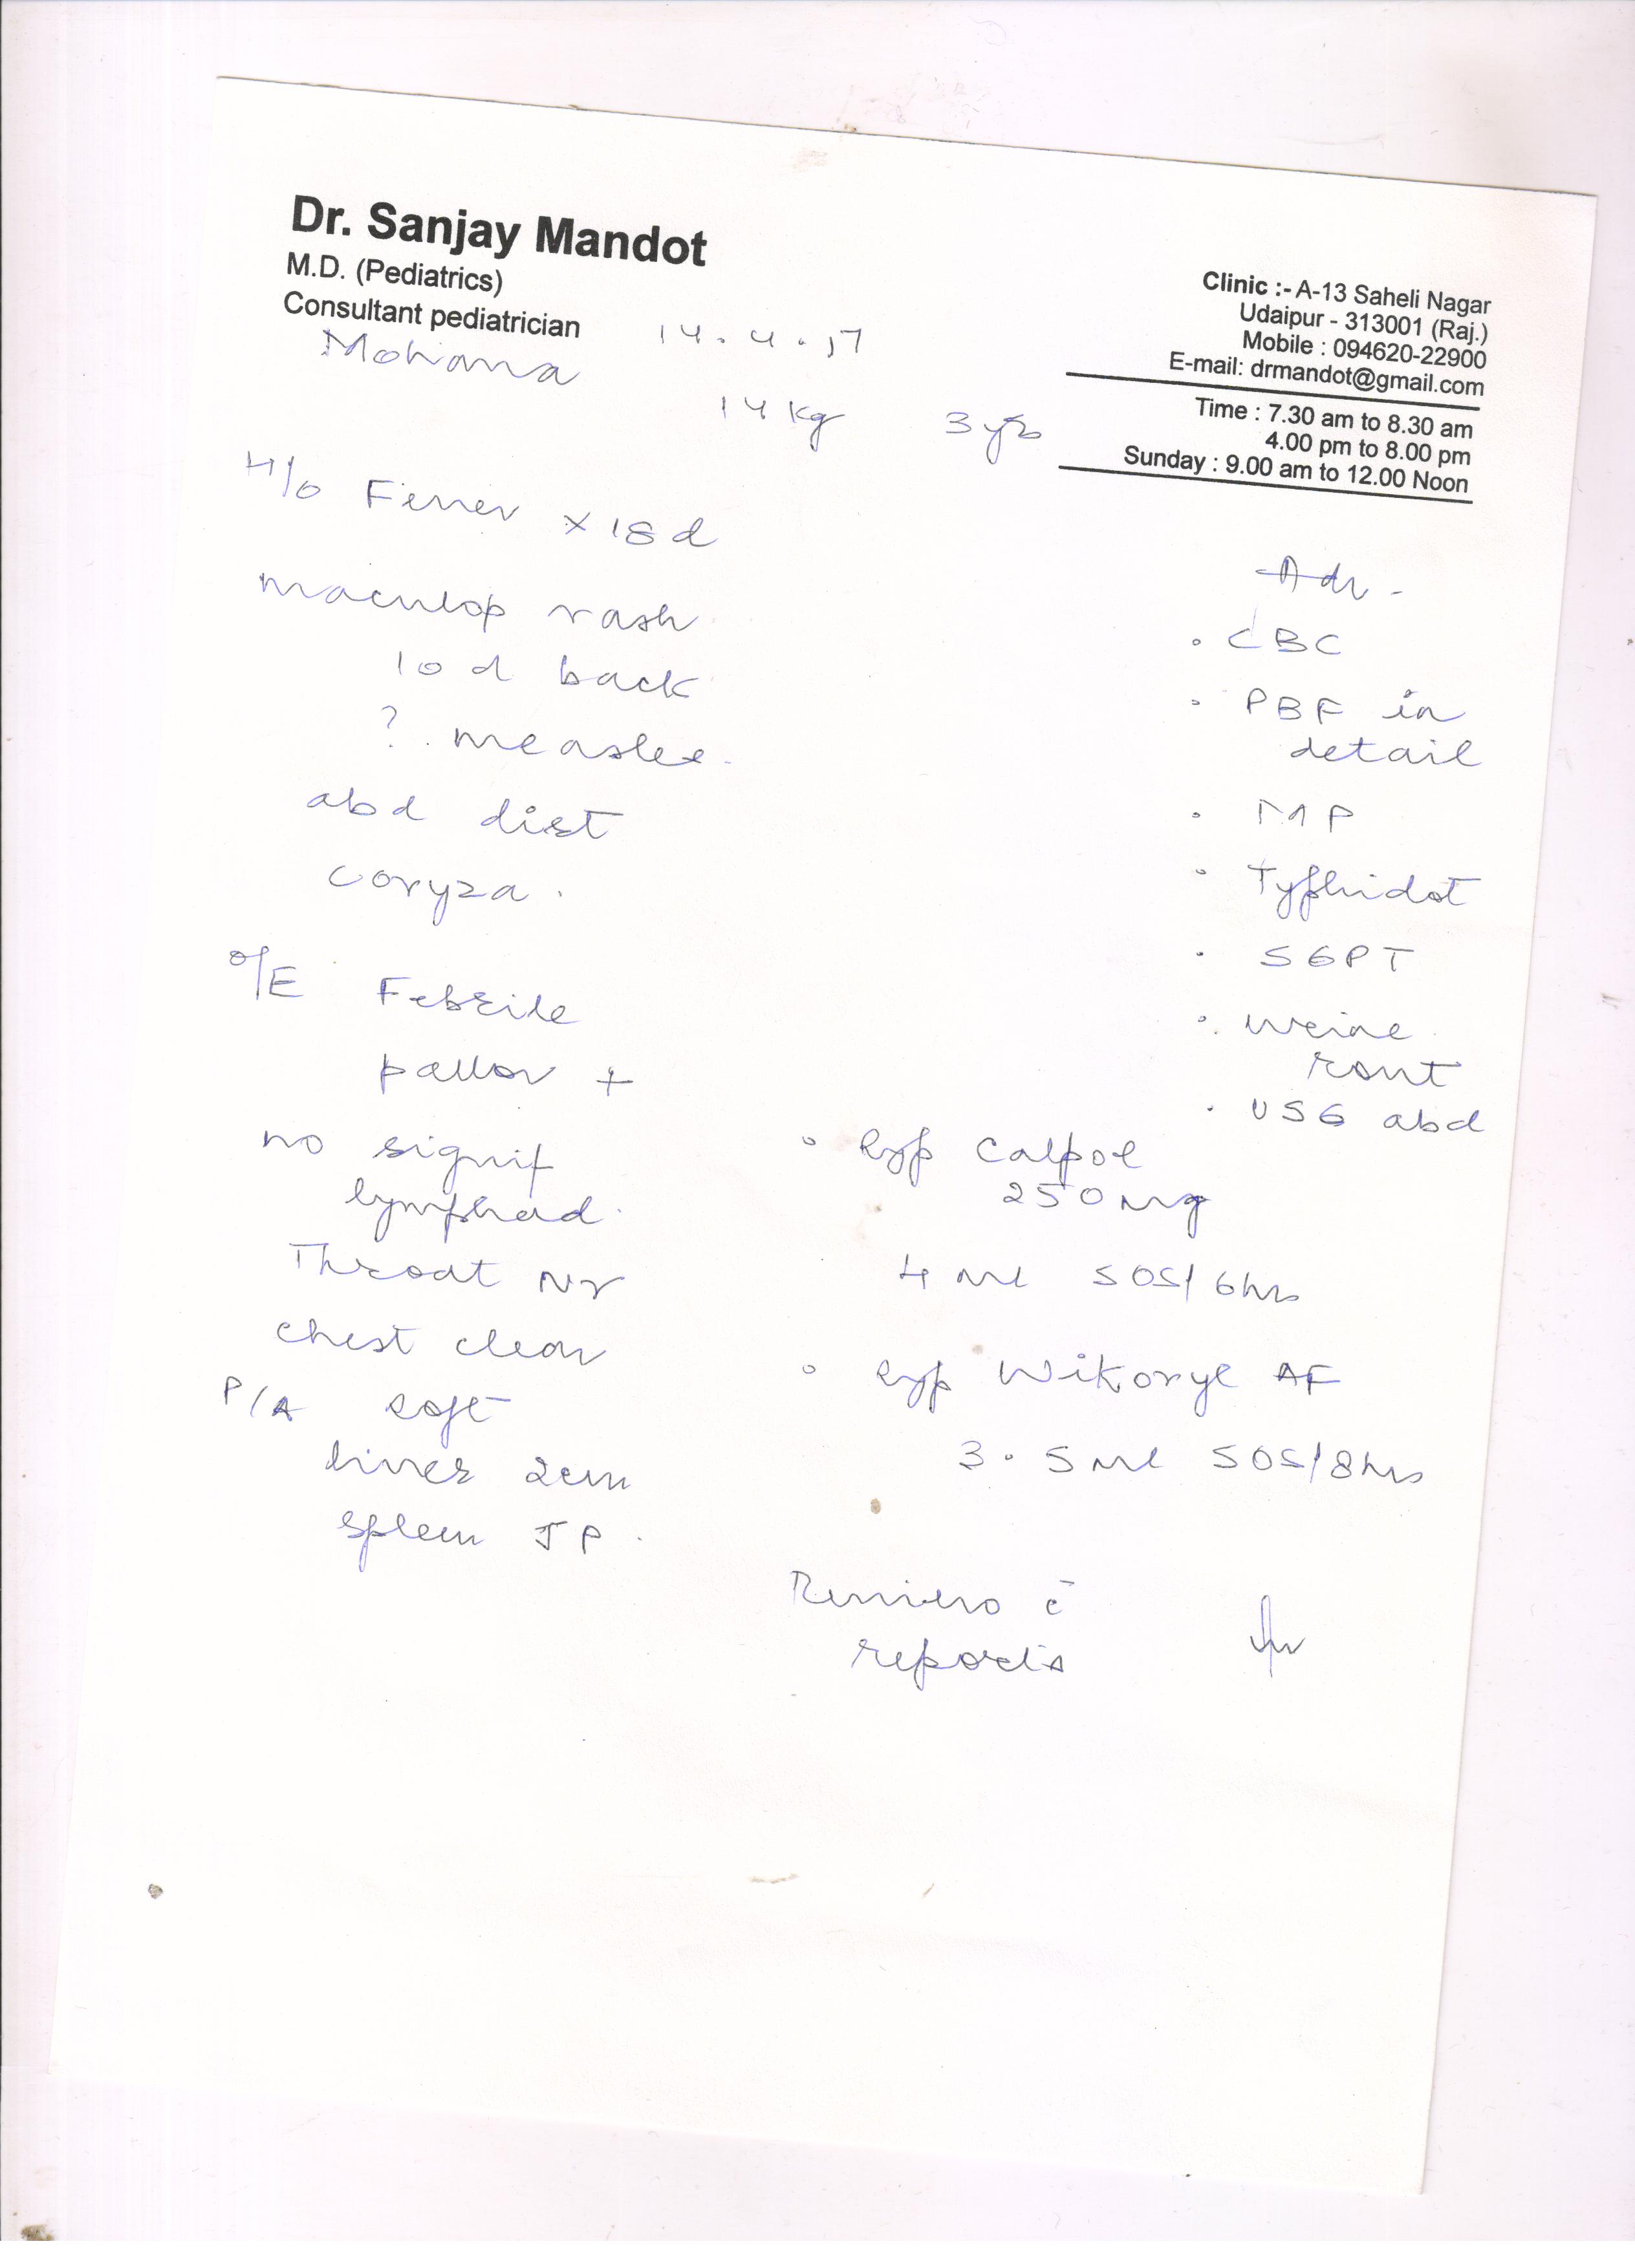 Dr. Sanjay Mandot
M.D. (Pediatrics)
Consultant pediatrician
Clinic :- A-13 Saheli Nagar
Udaipur - 313001 (Raj.)
Mobile : 094620-22900
E-mail: drmandot@gmail.com
Time : 7.30 am to 8.30 am
4.00 pm to 8.00 pm
Sunday : 9.00 am to 12.00 Noon
14.4.17
Mohana
14 kg 3 yrs
H/o Fever x 18 d
maculop rash
10 d back
? measles.
abd dist
coryza.
O/E Febrile
pallor +
no signif
lymphad.
Throat Nr
chest clear
P/A soft
liver 2cm
spleen JP.
Adv -
CBC
PBF in
detail
MP
Typhidot
SGPT
Urine
rout
USG abd
Syp Calpol
250 mg
4 ml SOS/6hrs
Syp Wikoryl AF
3.5 ml SOS/8hrs
Review c̄
reports